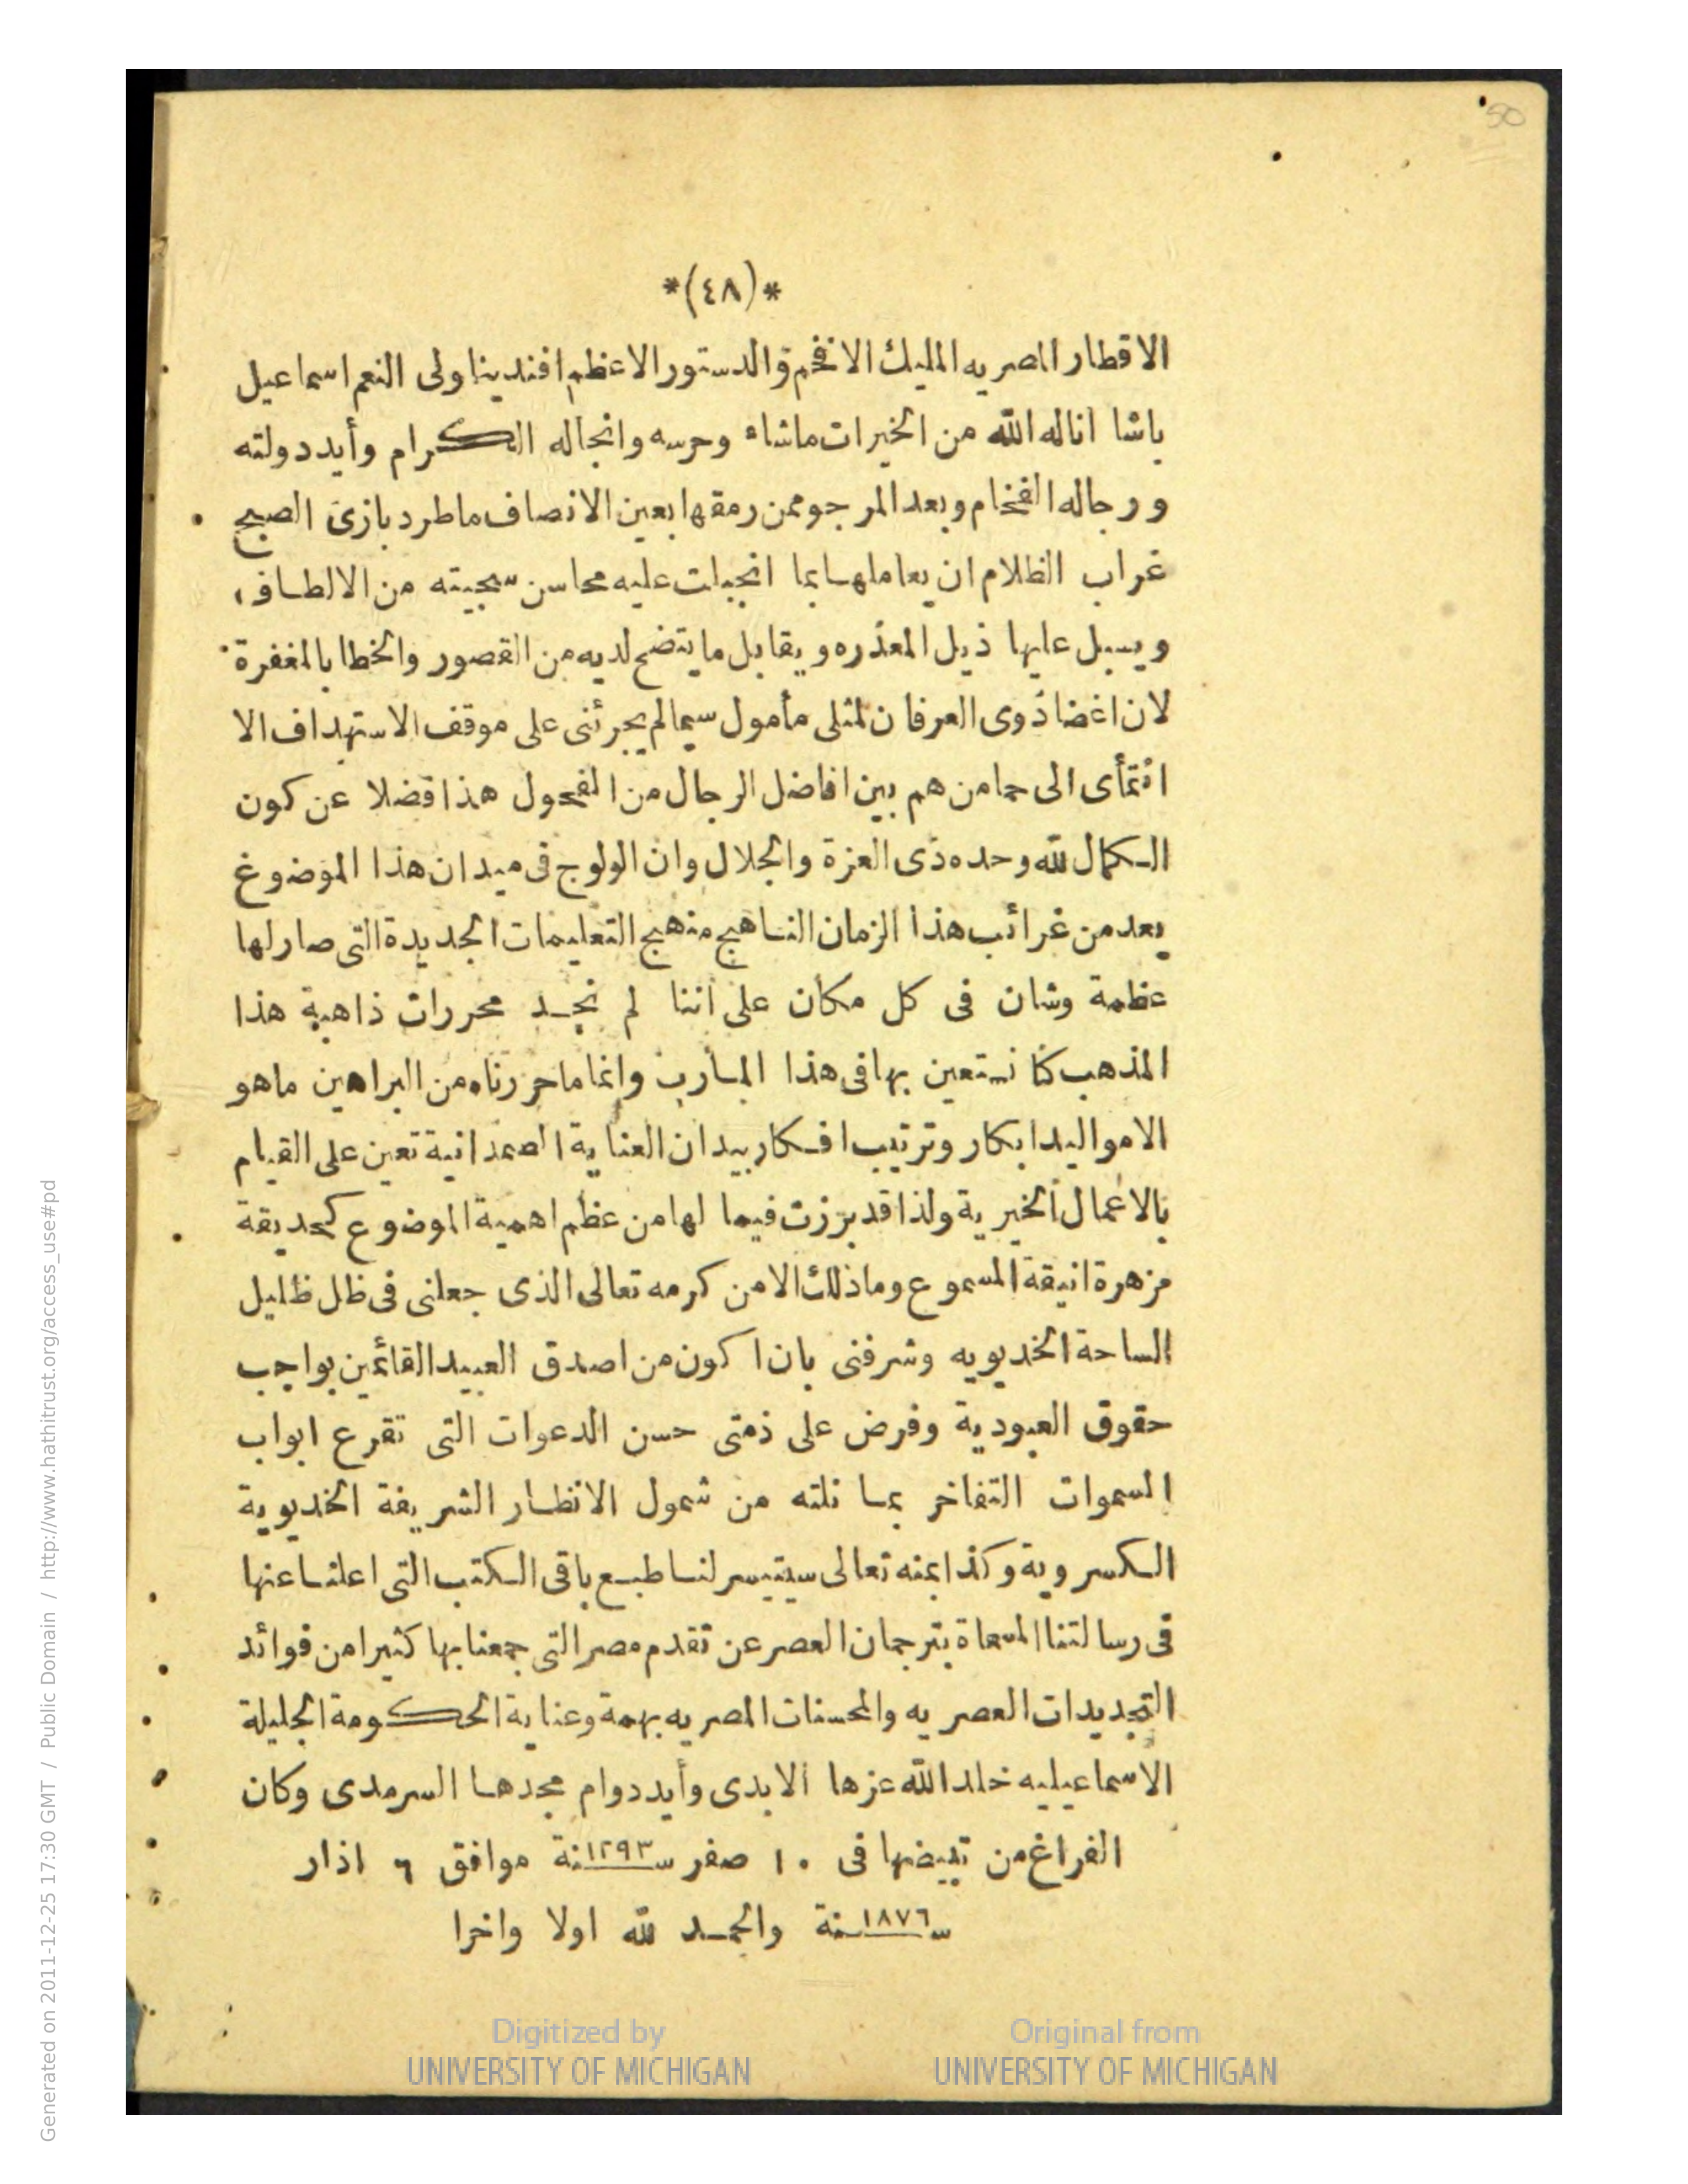 50
*(٤٨)*
الاقطار المصريه المليك الافخم والدستور الاعظم افندينا ولى النعم اسماعيل
باشا اناله الله من الخيرات ماشاء وحرسه وانجاله الكرام وأيد دولته
ورجاله الفخام وبعد المرجو ممن رمقها بعين الانصاف ماطرد بازى الصبح
غراب الظلام ان يعاملها بما انجبلت عليه محاسن سجيته من الالطاف
ويسبل عليها ذيل المعذره ويقابل ما يتضح لديه من القصور والخطا بالمغفرة
لان اغضا ذوى العرفان لمثلى مأمول سيما لم يجرئنى على موقف الاستهداف الا
انتمأى الى حما من هم بين افاضل الرجال من الفحول هذا فضلا عن كون
الكمال لله وحده ذى العزة والجلال وان الولوج فى ميدان هذا الموضوع
يعد من غرائب هذا الزمان الناهج منهج التعليمات الجديدة التى صار لها
عظمة وشان فى كل مكان على اننا لم نجد محررات ذاهبة هذا
المذهب كنا نستعين بها فى هذا المارب وانما ما حررناه من البراهين ماهو
الا مواليد ابكار وترتيب افكار بيد ان العناية الصمدانية تعين على القيام
بالاعمال الخيرية ولذا قد برزت فيما لها من عظم اهمية الموضوع كحديقة
مزهرة انيقة المسموع وما ذلك الا من كرمه تعالى الذى جعلنى فى ظل ظليل
الساحة الخديويه وشرفنى بان اكون من اصدق العبيد القائمين بواجب
حقوق العبودية وفرض على ذمتى حسن الدعوات التى تقرع ابواب
السموات التفاخر بما نلته من شمول الانظار الشريفة الخديوية
الكسروية وكذا بمنه تعالى سيتيسر لنا طبع باقى الكتب التى اعلنا عنها
فى رسالتنا المسماة بترجمان العصر عن تقدم مصر التى جمعنا بها كثيرا من فوائد
التجديدات العصريه والمحسنات المصريه بهمة وعناية الحكومة الجليلة
الاسماعيليه خلد الله عزها الابدى وأيد دوام مجدها السرمدى وكان
الفراغ من تبيضها فى ١٠ صفر سنة ١٢٩٣ موافق ٦ اذار
سنة ١٨٧٦ والحمد لله اولا واخرا
Digitized by
UNIVERSITY OF MICHIGAN
Original from
UNIVERSITY OF MICHIGAN
Generated on 2011-12-25 17:30 GMT / Public Domain / http://www.hathitrust.org/access_use#pd